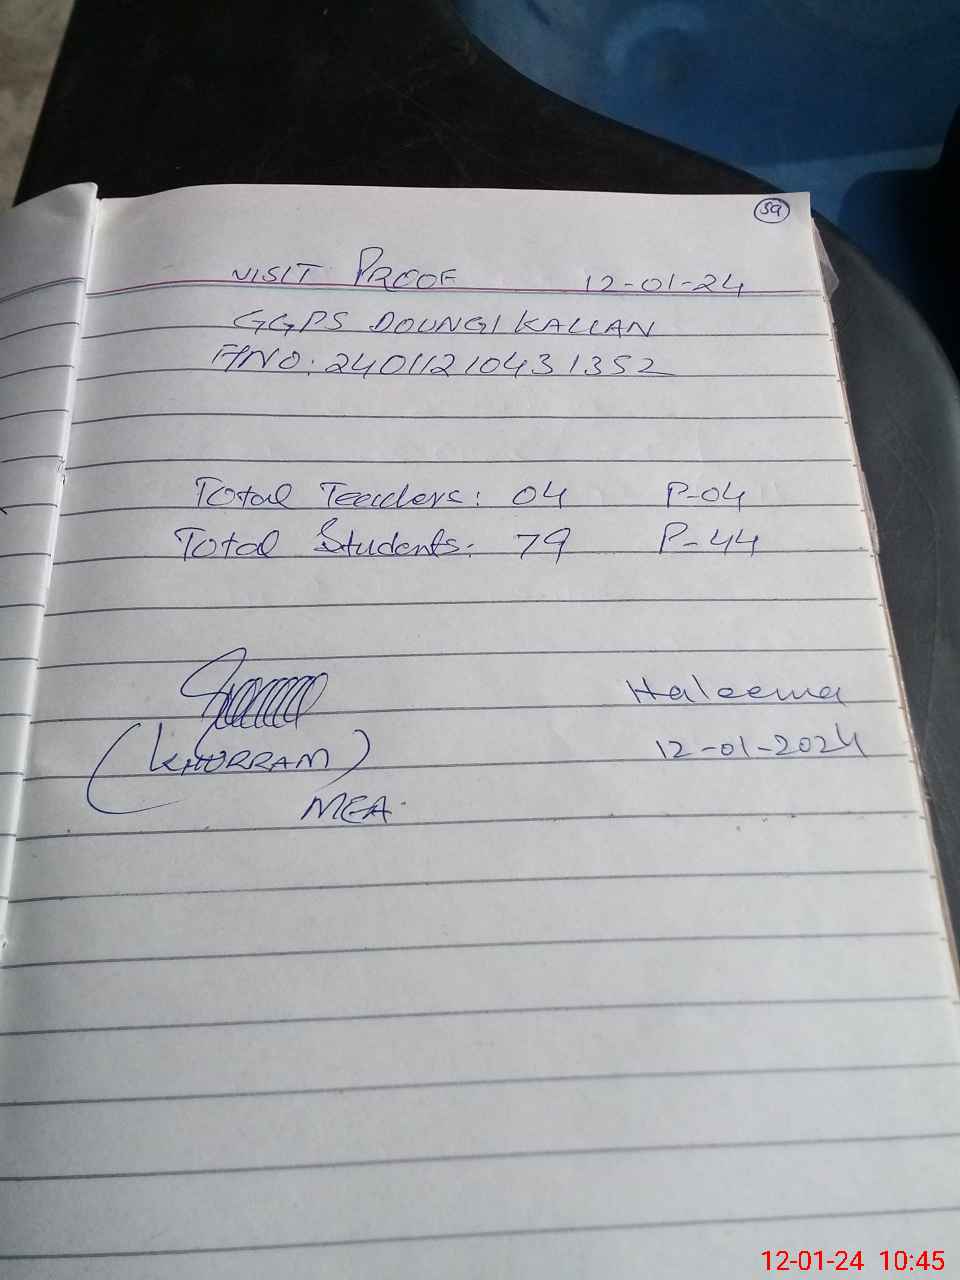 59
VISIT PROOF 12-01-24
GGPS DOUNGI KALLAN
F/NO: 2401121043 1352
Total Teachers: 04 P-04
Total Students: 79 P-44
Haleema
(KHURRAM) 12-01-2024
MEA.
12-01-24 10:45